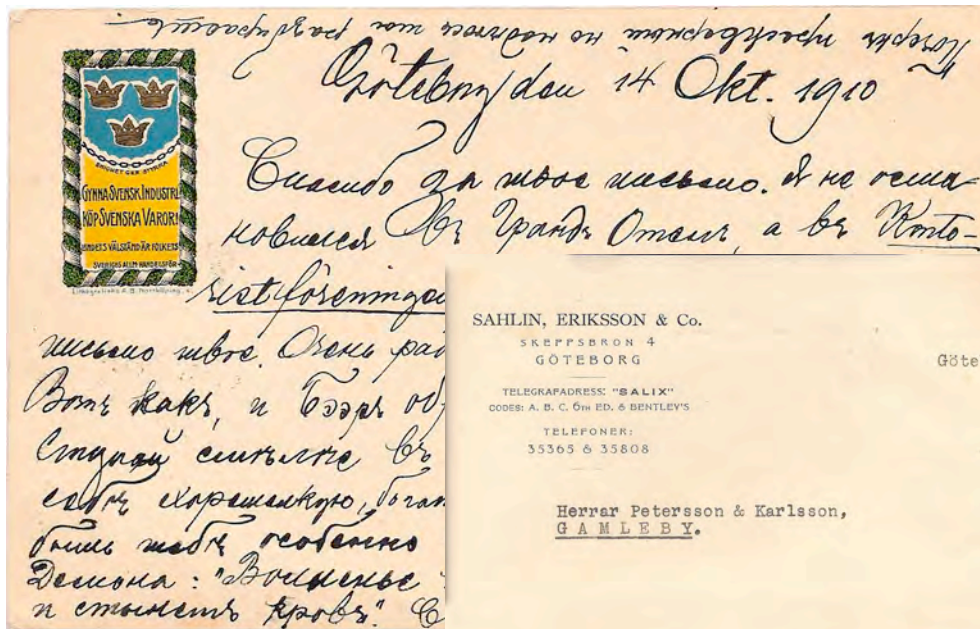 Почеркъ прескверный но надѣюсь что разберешь
Göteborg den 14 Okt. 1910
Спасибо за твое письмо. Я не оста-
новился въ Грандъ Отель, а въ Konto-
ristföreningen
письмо твое. Очень рад
Вотъ какъ, и Бэръ об
Ступай смѣлѣе въ
себѣ хорошенькую, богат
тебѣ особенно
Демона: "Волненье
и стынетъ кровь". С
ENIGHET GER STYRKA
GYNNA SVENSK INDUSTRI
KÖP SVENSKA VAROR!
LANDETS VÄLSTÅND ÄR FOLKETS
SVERIGES ALLM. HANDELSFÖR
Litografiska A. B. Norrköping.
SAHLIN, ERIKSSON & Co.
SKEPPSBRON 4
GÖTEBORG
Göte
TELEGRAFADRESS: "SALIX"
CODES: A. B. C. 6TH ED. & BENTLEY'S
TELEFONER:
35365 & 35808
Herrar Petersson & Karlsson,
GAMLEBY.